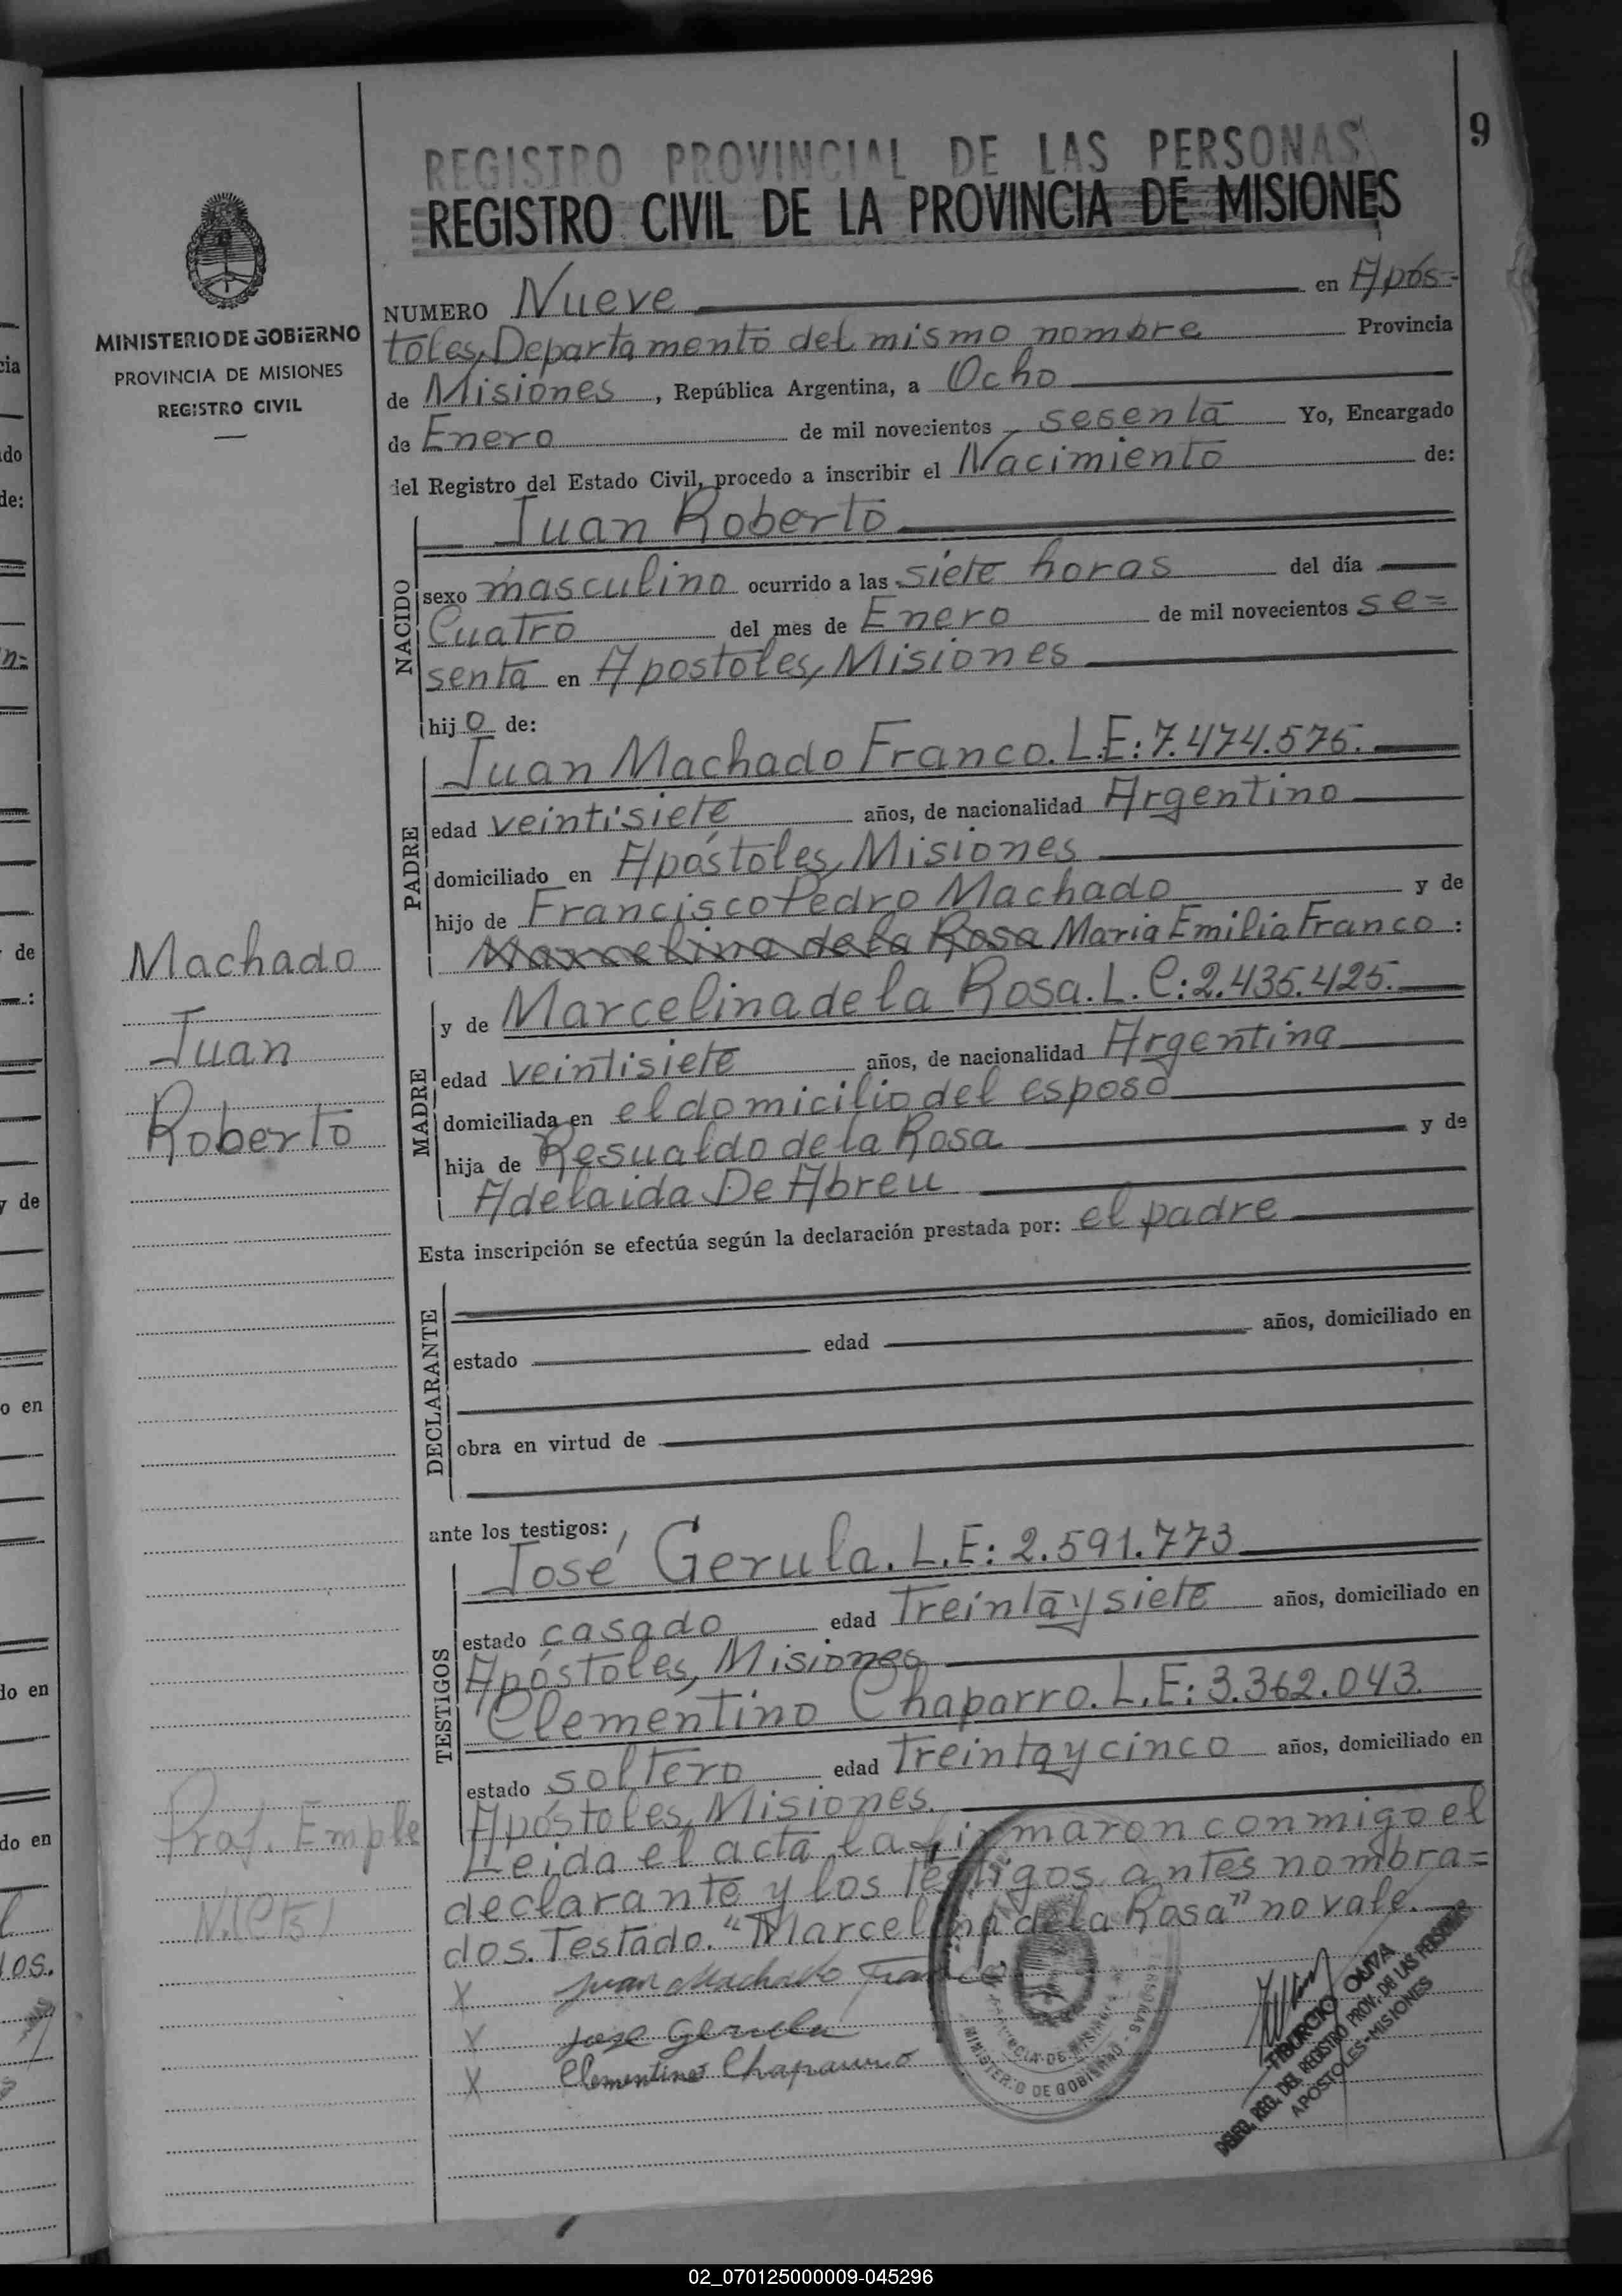 9
REGISTRO PROVINCIAL DE LAS PERSONAS
REGISTRO CIVIL DE LA PROVINCIA DE MISIONES
MINISTERIO DE GOBIERNO
PROVINCIA DE MISIONES
REGISTRO CIVIL
NUMERO Nueve en Após-
toles, Departamento del mismo nombre Provincia
de Misiones, República Argentina, a Ocho
de Enero de mil novecientos sesenta Yo, Encargado
del Registro del Estado Civil, procedo a inscribir el Nacimiento de:
NACIDO
Juan Roberto
sexo masculino ocurrido a las siete horas del día
Cuatro del mes de Enero de mil novecientos se=
senta en Apostoles, Misiones
hijo de:
PADRE
Juan Machado Franco. L.E: 7.474.575.
edad veintisiete años, de nacionalidad Argentino
domiciliado en Apóstoles, Misiones
hijo de Francisco Pedro Machado y de
Marcelina de la Rosa Maria Emilia Franco :
MADRE
y de Marcelina de la Rosa. L. C: 2.435.425.
edad veintisiete años, de nacionalidad Argentina
domiciliada en el domicilio del esposo
hija de Resualdo de la Rosa y de
Adelaida De Abreu
Esta inscripción se efectúa según la declaración prestada por: el padre
DECLARANTE
estado edad años, domiciliado en
obra en virtud de
ante los testigos:
TESTIGOS
José Gerula. L.E: 2.591.773
estado casado edad Treinta y siete años, domiciliado en
Apóstoles, Misiones
Clementino Chaparro. L.E: 3.362.043.
estado soltero edad Treinta y cinco años, domiciliado en
Apóstoles, Misiones.
Leida el acta la firmaron conmigo el
declarante y los testigos antes nombra=
dos. Testado. "Marcelina de la Rosa" no vale.
X Juan Machado Franco
X Jose Gerula
X Clementino Chaparro
Machado
Juan
Roberto
Prof. Emple
PROVINCIA DE MISIONES
MINISTERIO DE GOBIERNO
TIBURCIO
REG. DEL REGISTRO PROV. DE LAS PERSONAS
APOSTOLES-MISIONES
cia
do
de:
n=
de
y de
o en
do en
do en
los.
02_070125000009-045296